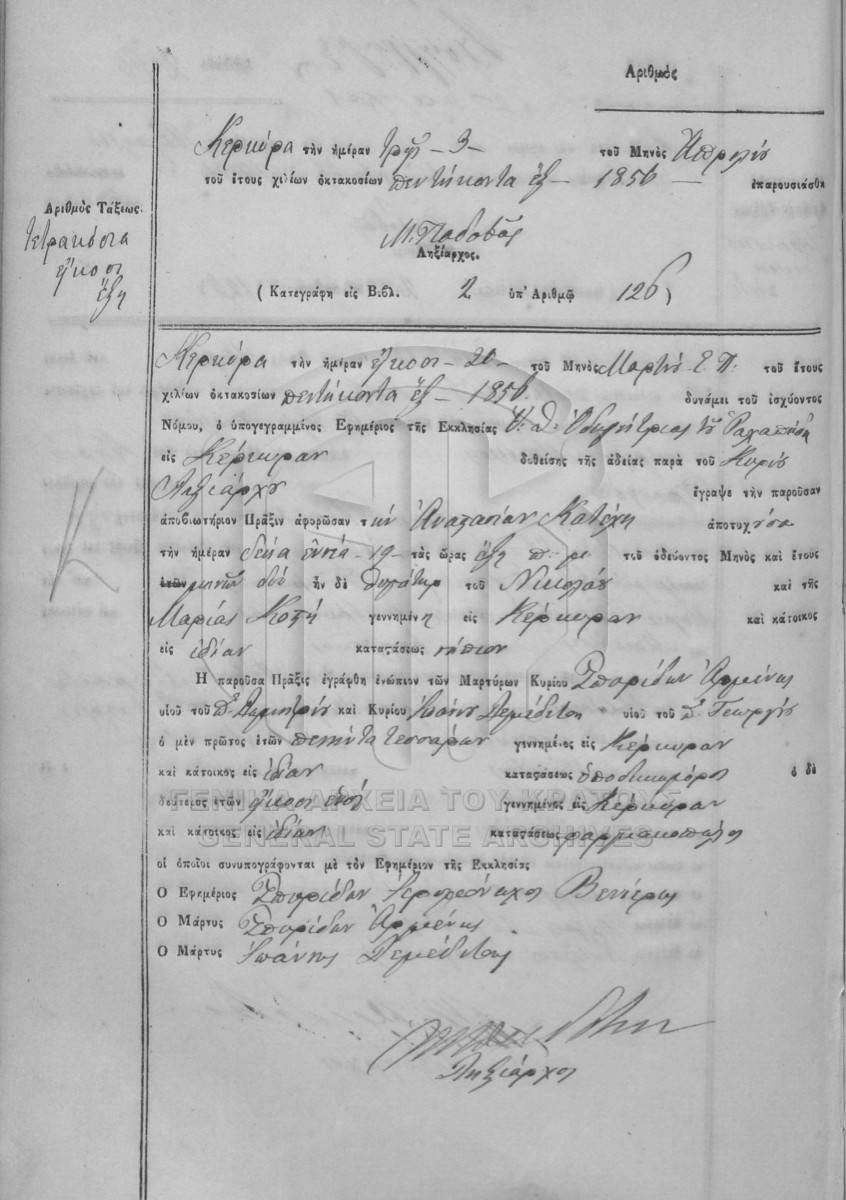 Ἀριθμὸς
Κερκύρα τὴν ἡμέραν τρεῖς - 3 - τοῦ Μηνὸς Ἀπριλίου
τοῦ ἔτους χιλίων ὀκτακοσίων πεντήκοντα ἓξ - 1856 - ἐπαρουσιάσθη
Ἀριθμὸς Τάξεως.
τετρακόσια
εἴκοσι
ἕξη
Μ. Παδοβᾶς
Ληξίαρχος.
( Κατεγράφη εἰς Βιβλ. 2 ὑπ' Ἀριθμῷ 126 )
Κερκύρα τὴν ἡμέραν εἴκοσι - 20 - τοῦ Μηνὸς Μαρτίου Ε. Π. τοῦ ἔτους
χιλίων ὀκτακοσίων πεντήκοντα ἓξ - 1856 δυνάμει τοῦ ἰσχύοντος
Νόμου, ὁ ὑπογεγραμμένος Ἐφημέριος τῆς Ἐκκλησίας Ὑ. Θ. Ὁδηγήτριας
εἰς Κέρκυραν δοθείσης τῆς ἀδείας παρὰ τοῦ Κυρίου
Ληξιάρχου ἔγραψε τὴν παροῦσαν
ἀποβιωτήριον Πρᾶξιν ἀφορῶσαν τὴν Ἀναστασίαν Κατέχη ἀποτυχοῦσα
τὴν ἡμέραν δέκα ἐννέα - 19 - τὰς ὥρας ἕξη π. μ. τοῦ ὁδεύοντος Μηνὸς καὶ ἔτους
ἐτῶν μηνῶν δύο ἦν δὲ θυγάτηρ τοῦ Νικολάου καὶ τῆς
Μαρίας γεννημένη εἰς Κέρκυραν καὶ κάτοικος
εἰς ἰδίαν καταστάσεως νήπιον
Ἡ παροῦσα Πρᾶξις ἐγράφθη ἐνώπιον τῶν Μαρτύρων Κυρίου Σπυρίδων Ἀρμένης
υἱοῦ τοῦ Δημητρίου καὶ Κυρίου Ἰωάννου υἱοῦ τοῦ Γεωργίου
ὁ μὲν πρῶτος ἐτῶν πενήντα τεσσάρων γεννημένος εἰς Κέρκυραν
καὶ κάτοικος εἰς ἰδίαν καταστάσεως ὁ δὲ
δεύτερος ἐτῶν εἴκοσι ἑνὸς γεννημένος εἰς Κέρκυραν
καὶ κάτοικος εἰς ἰδίαν καταστάσεως φαρμακοπώλης
οἱ ὁποῖοι συνυπογράφονται μὲ τὸν Ἐφημέριον τῆς Ἐκκλησίας
Ὁ Ἐφημέριος Σπυρίδων Ἱερομόναχος Βεντύρας
Ὁ Μάρτυς Σπυρίδων Ἀρμένης
Ὁ Μάρτυς Ἰωάννης
Ληξίαρχος
ΓΕΝΙΚΑ ΑΡΧΕΙΑ ΤΟΥ ΚΡΑΤΟΥΣ
GENERAL STATE ARCHIVES